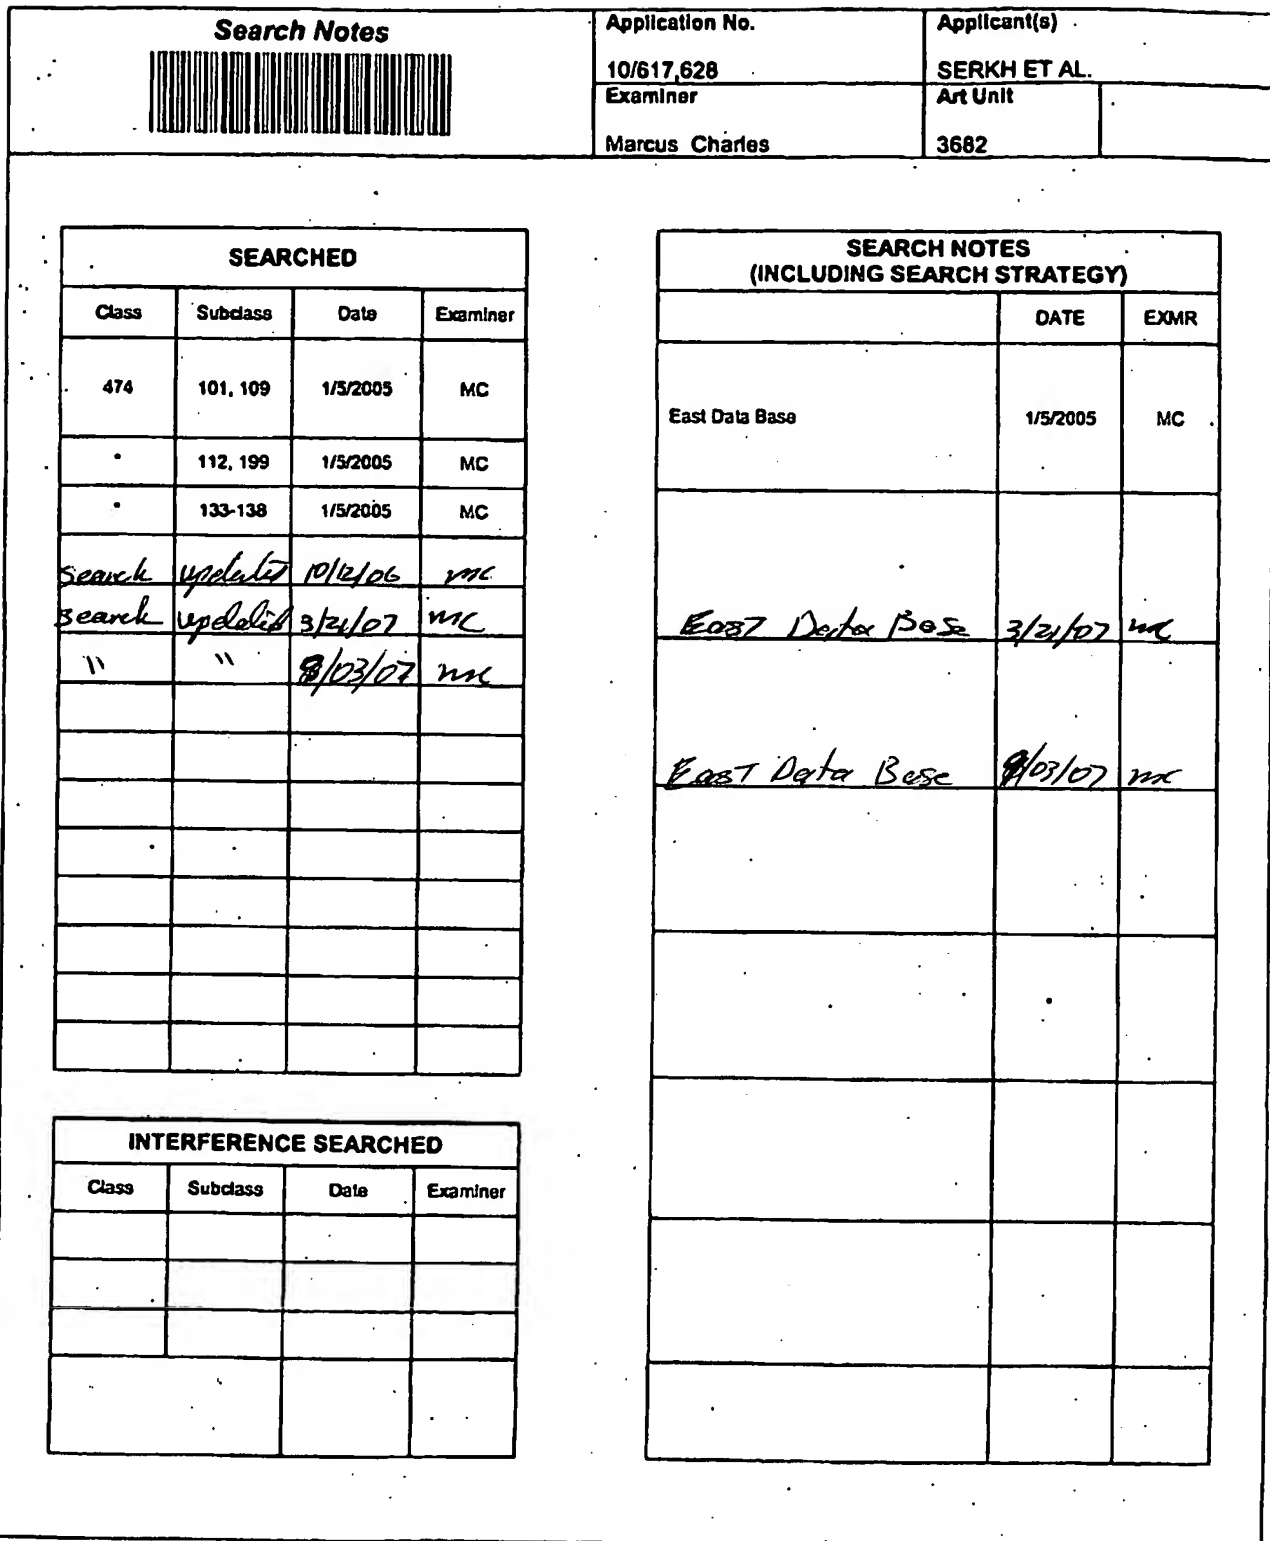 Search Notes
Application No.
10/617,628
Applicant(s)
SERKH ET AL.
Examiner
Marcus Charles
Art Unit
3682
SEARCHED
Class Subclass Date Examiner
474 101, 109 1/5/2005 MC
" 112, 199 1/5/2005 MC
" 133-138 1/5/2005 MC
search updated 10/12/06 mc
search updated 3/21/07 mc
" " /03/07 mc
INTERFERENCE SEARCHED
Class Subclass Date Examiner
SEARCH NOTES
(INCLUDING SEARCH STRATEGY)
DATE EXMR
East Data Base 1/5/2005 MC
East Data Base 3/21/07 mc
East Data Base /03/07 mc